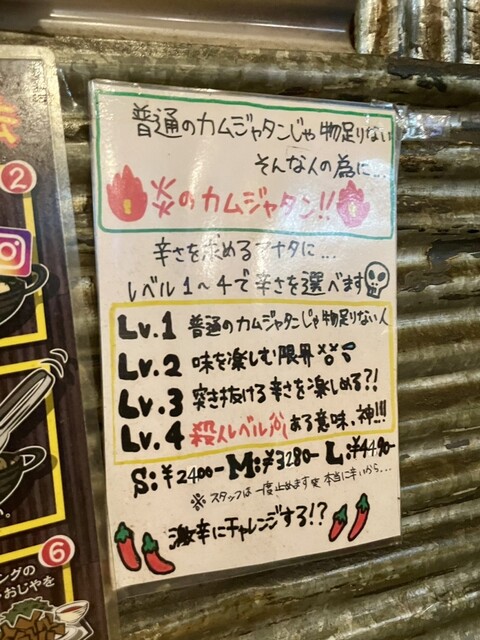 普通のカムジャタンじゃ物足りない
そんな人の為に...
炎のカムジャタン!!
辛さを求めるアナタに...
レベル1~4で辛さを選べます
Lv.1 普通のカムジャタンじゃ物足りない人
Lv.2 味を楽しむ限界
Lv.3 突き抜ける辛さを楽しめる?!
Lv.4 殺人レベル ある意味、神!!!
S:¥2400- M:¥3280- L:¥4490-
※スタッフは一度止めます 本当に辛いから...
激辛にチャレンジする!?
2
6
ングの
おじやを